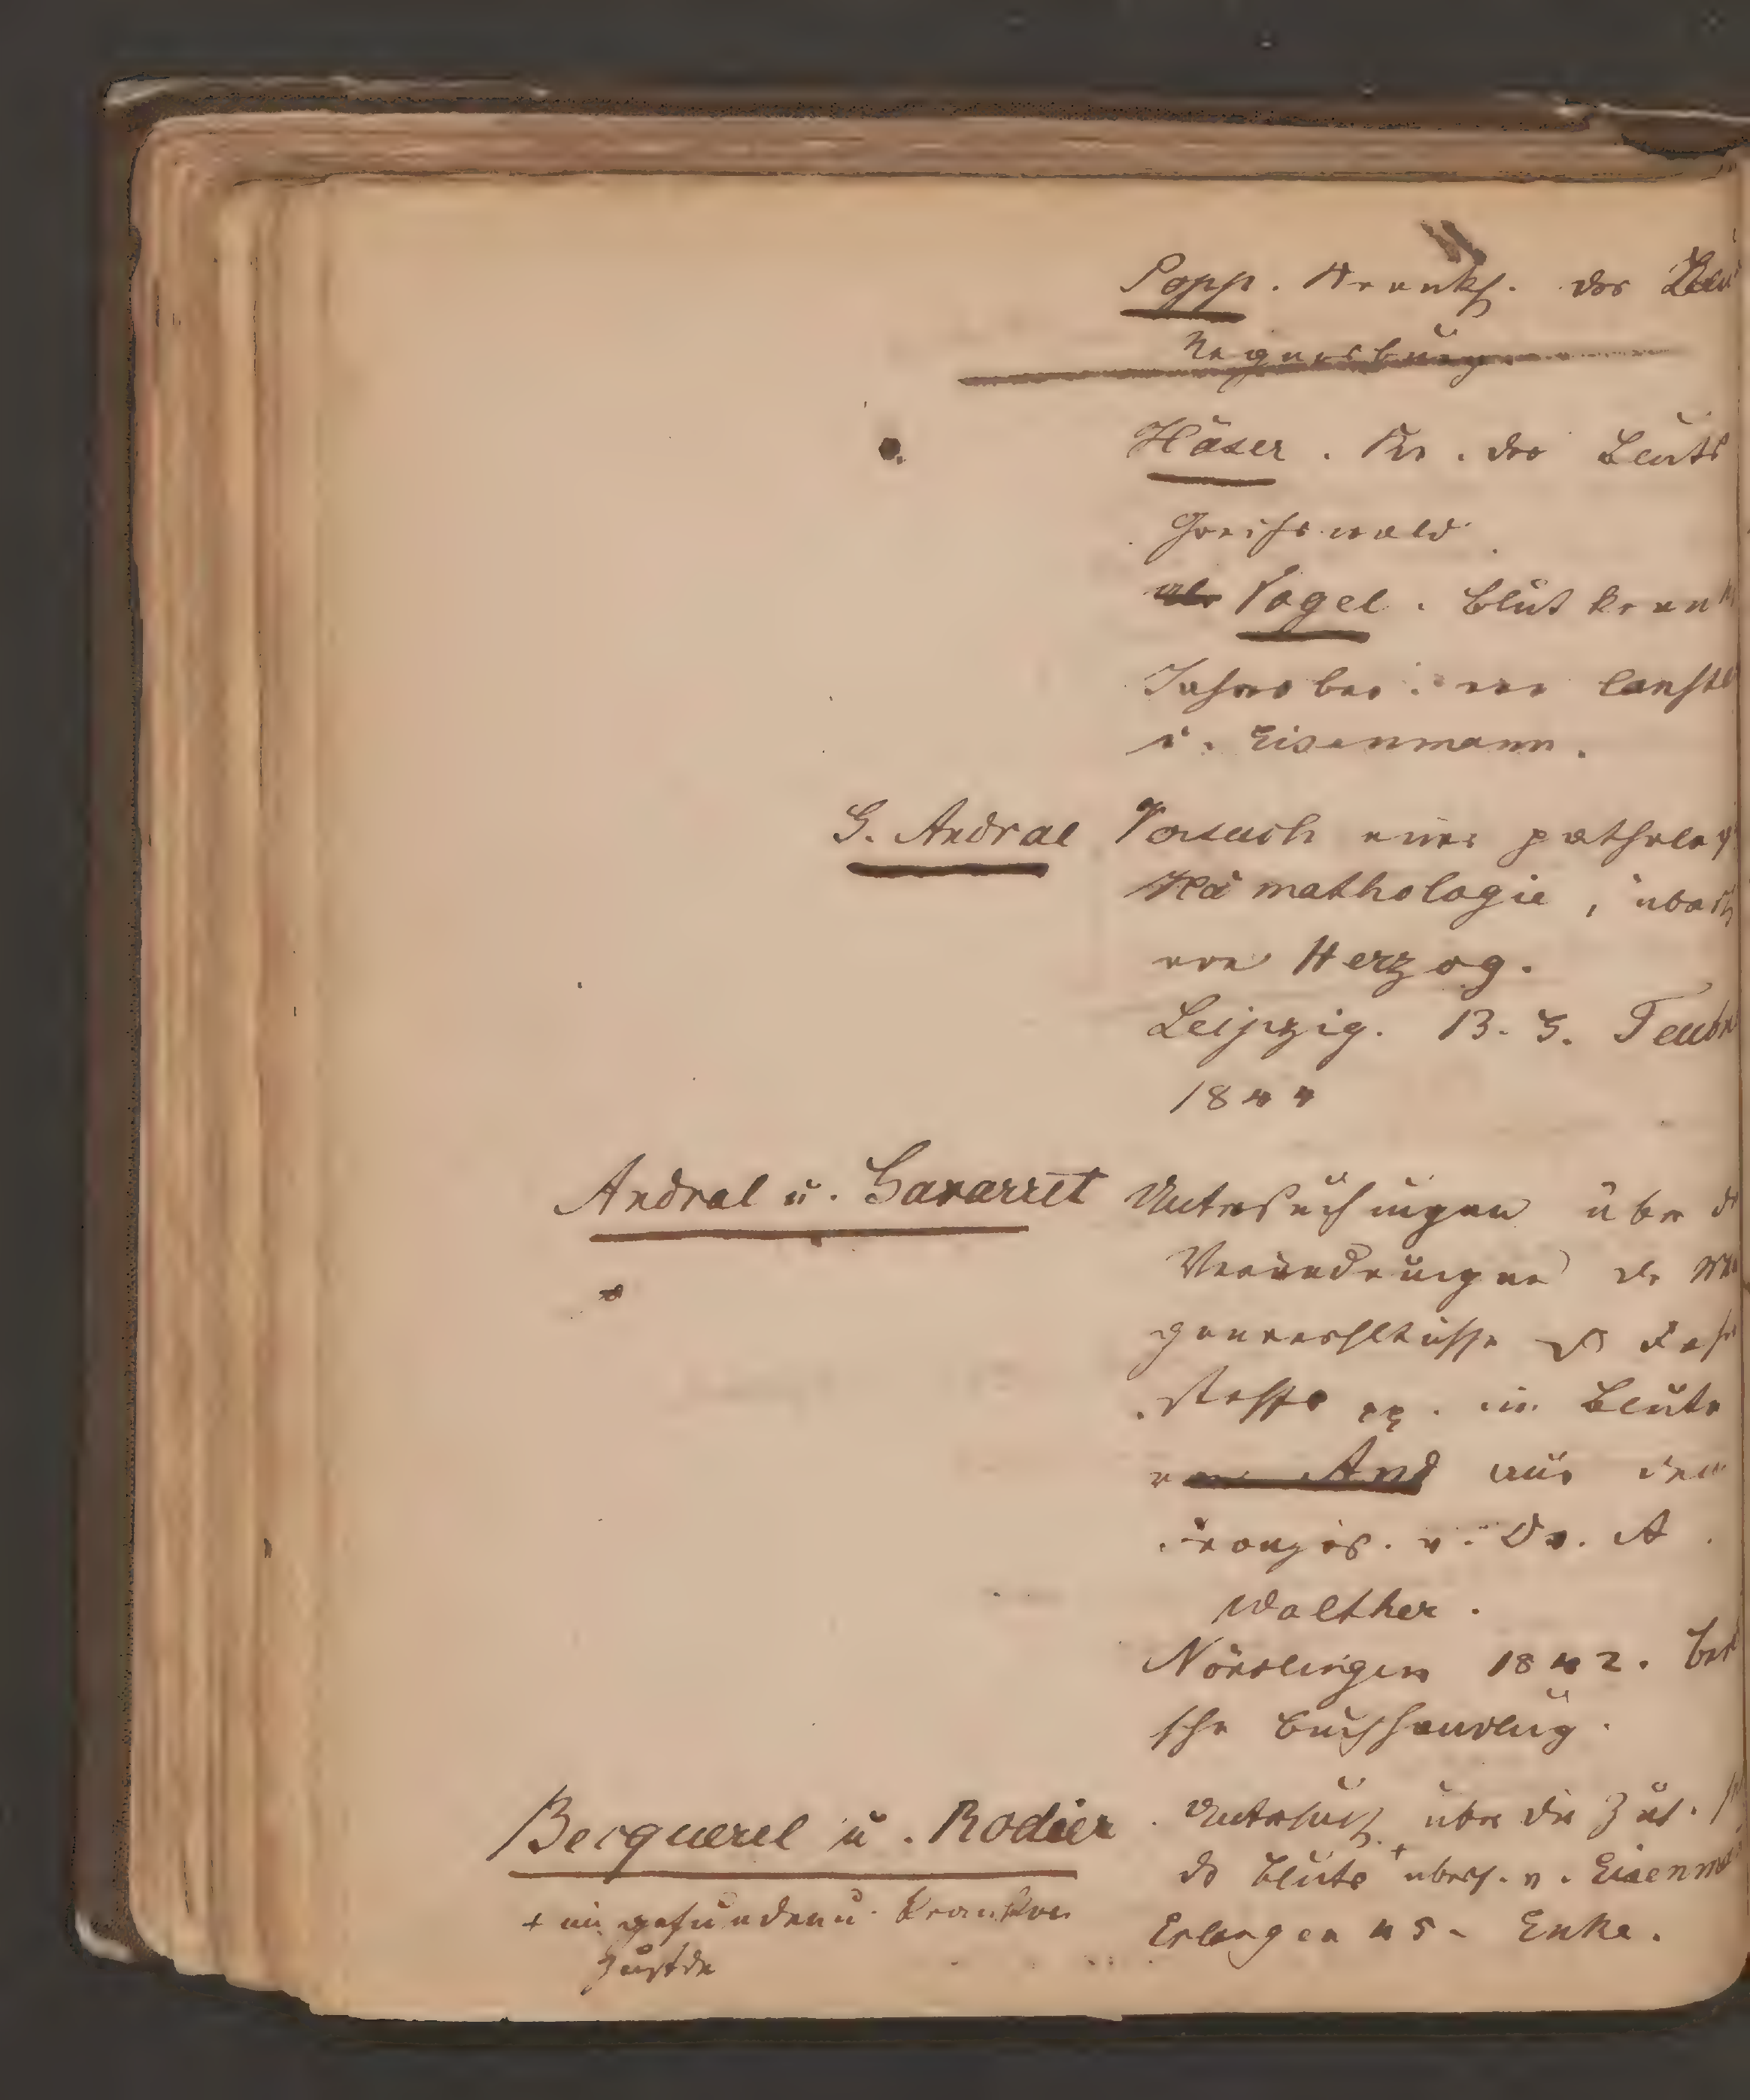 Popp. Krankh. des Blu
Regensburg
Häser. Kr. des Bluts
Greifswald
Vogel. Blutkrankh
Jahresber. von Canstt
u. Eisenmann.
G. Andral Versuch einer patholog
Hämathologie, übers
von Herzog.
Leipzig. B. G. Teubn
1844
Andral u. Gavarret Untersuchungen über d
Veränderungen der Men
genverhältnisse des Fase
stoffs pp. im Blute
von And aus dem
Französ. v. Dr. A.
Walther.
Nördlingen 1842. Beck
sche Buchhandlung.
Becquerel u. Rodier Untersuch. über die Zus.
des Bluts + übers. v. Eisenma
Erlangen 45 - Enke.
+ im gesunden u. kranken
Zustde